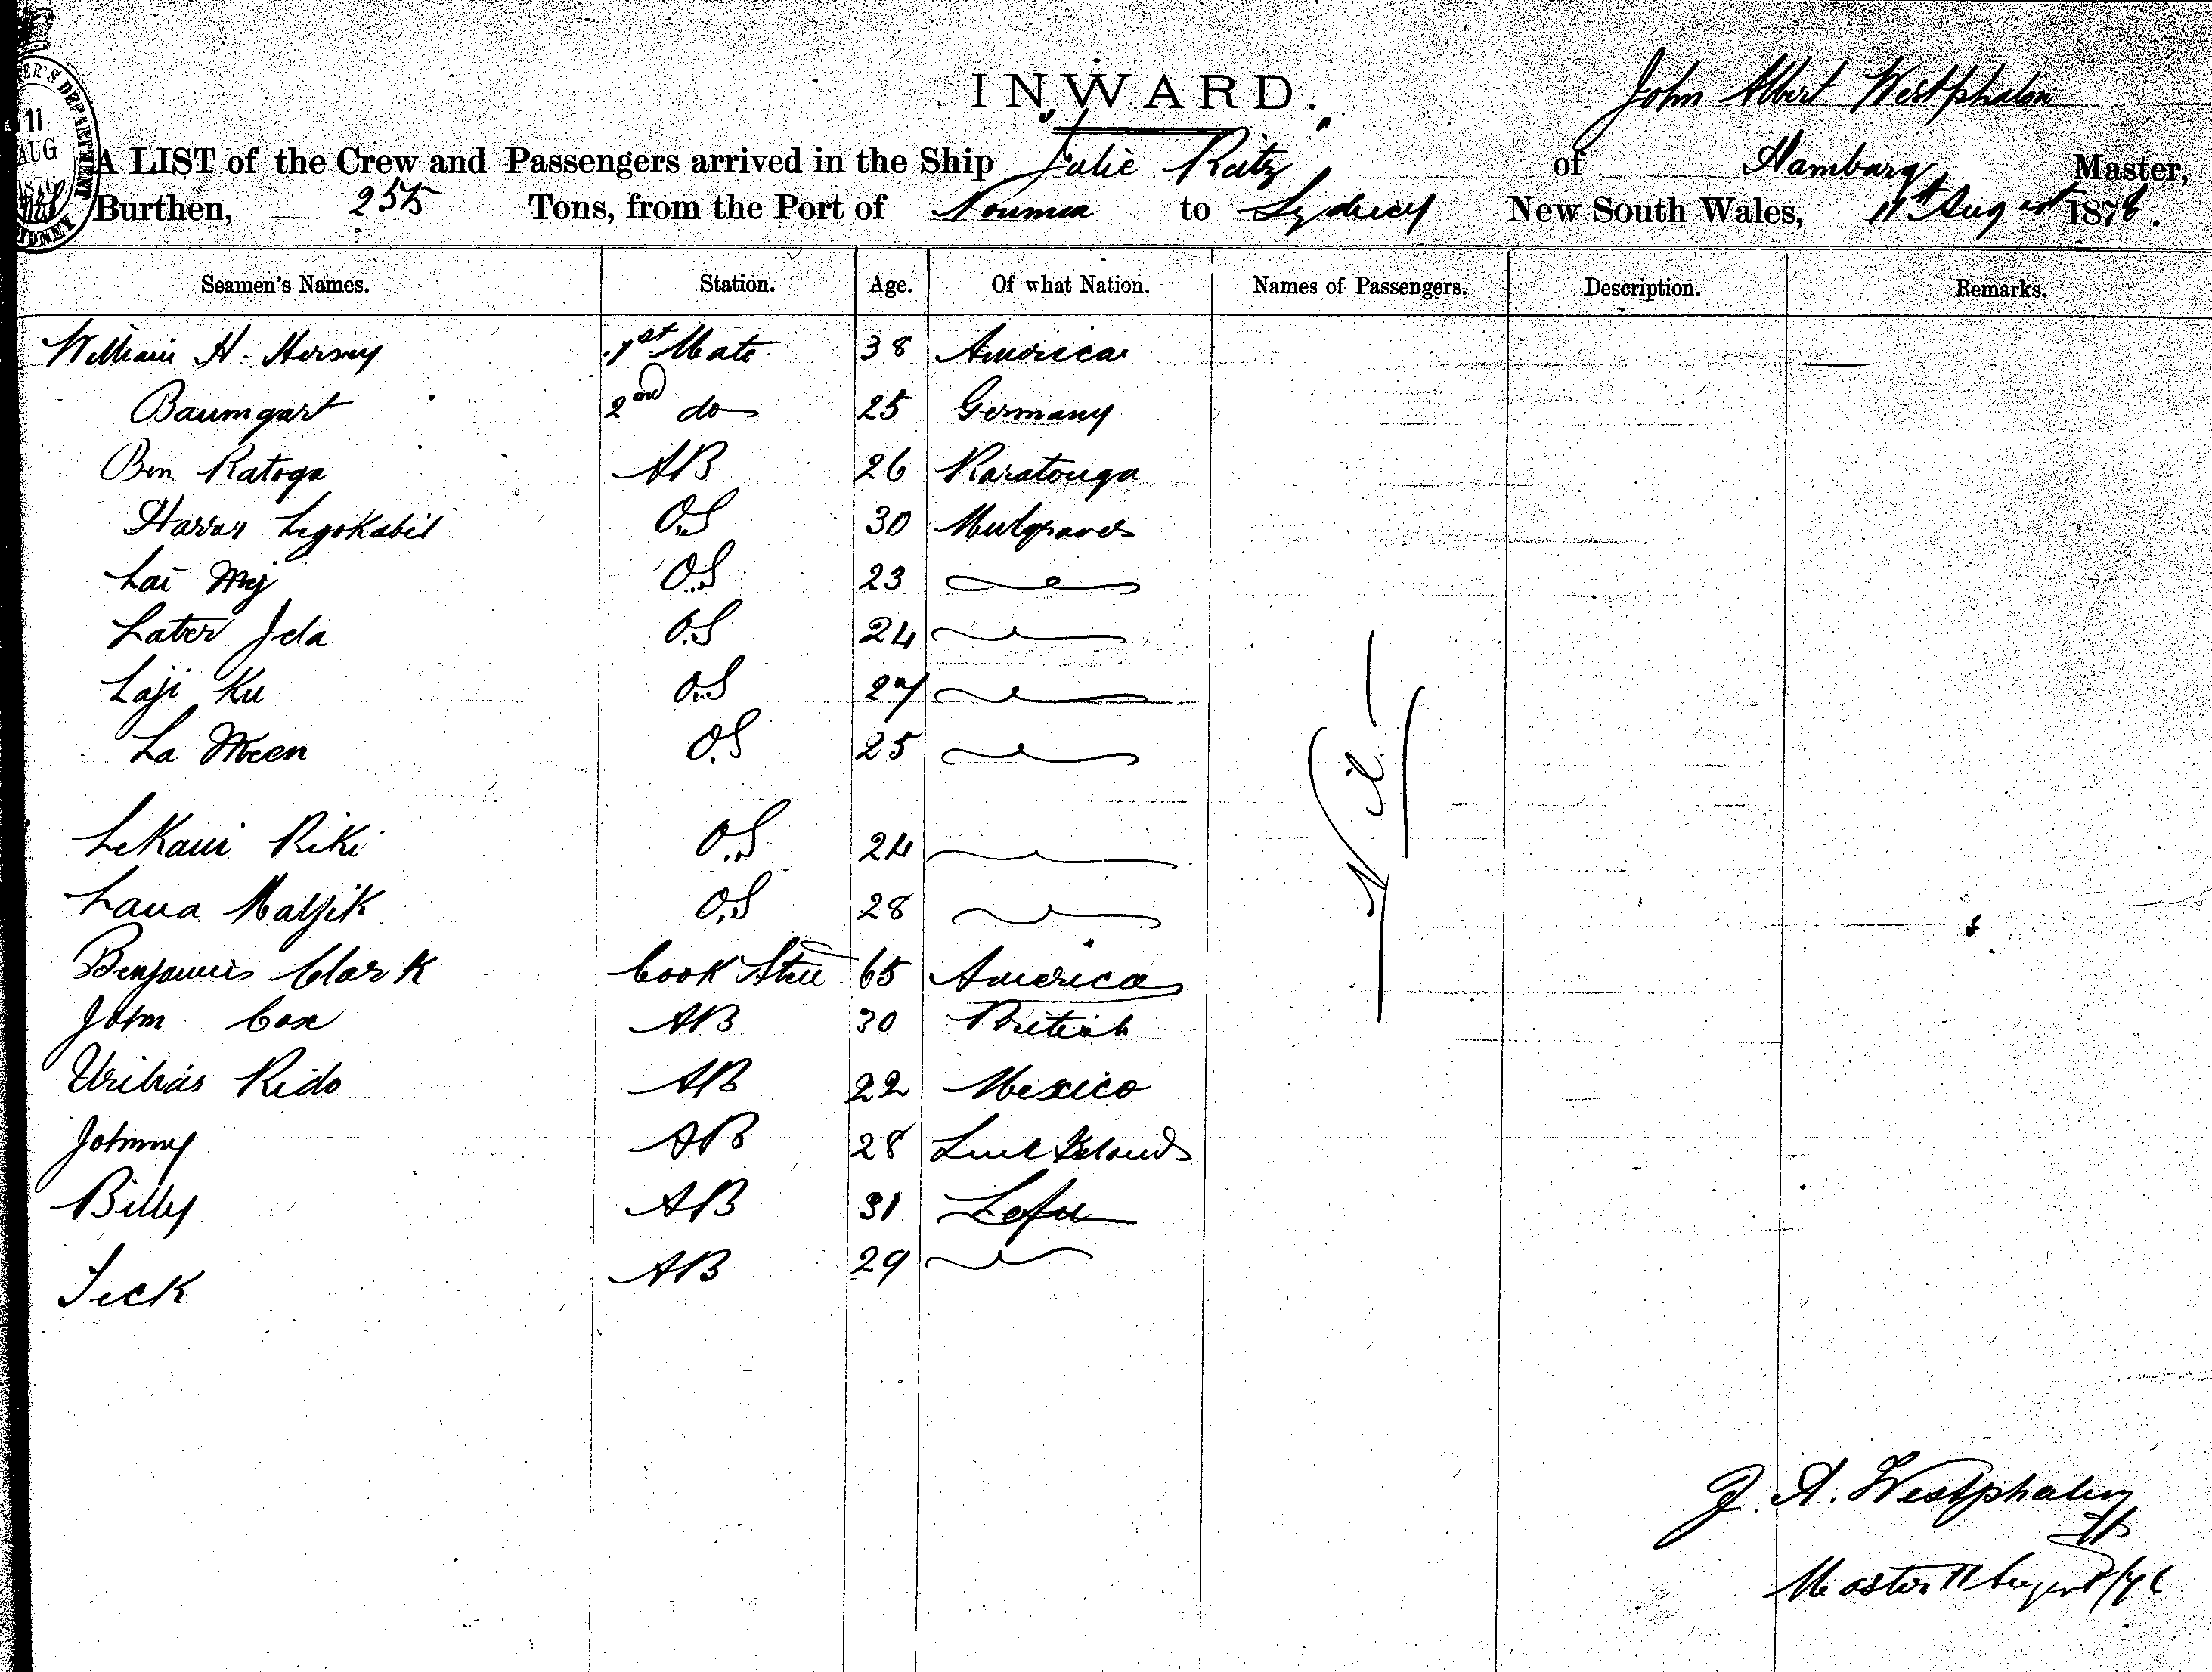 INWARD.
John Albert Westphalen
A LIST of the Crew and Passengers arrived in the Ship "Julie Reitz" of Hamburg Master,
Burthen, 255 Tons, from the Port of Noumea to Sydney New South Wales, 11th August 1876.
11
AUG
Seamen's Names. Station. Age. Of what Nation. Names of Passengers. Description. Remarks.
William H. Hersey 1st Mate 38 America
Baumgart 2nd do 25 Germany
Ben Ratoga AB 26 Raratonga
Harry Legokabil O.S 30 Mulgraves
Lai Mij O.S 23
Later Jela O.S 24
Laji Ku O.S 27
La Meen O.S 25
Nil
LeKaui Riki O.S 24
Laua Maljik O.S 28
Benjamin Clark Cook Stew 65 America
John Cox AB 30 British
Rido AB 22 Mexico
Johnny AB 28 Islands
Billy AB 31 Lefu
Jeck AB 29
J. A. Westphalen
Master 11 August/76